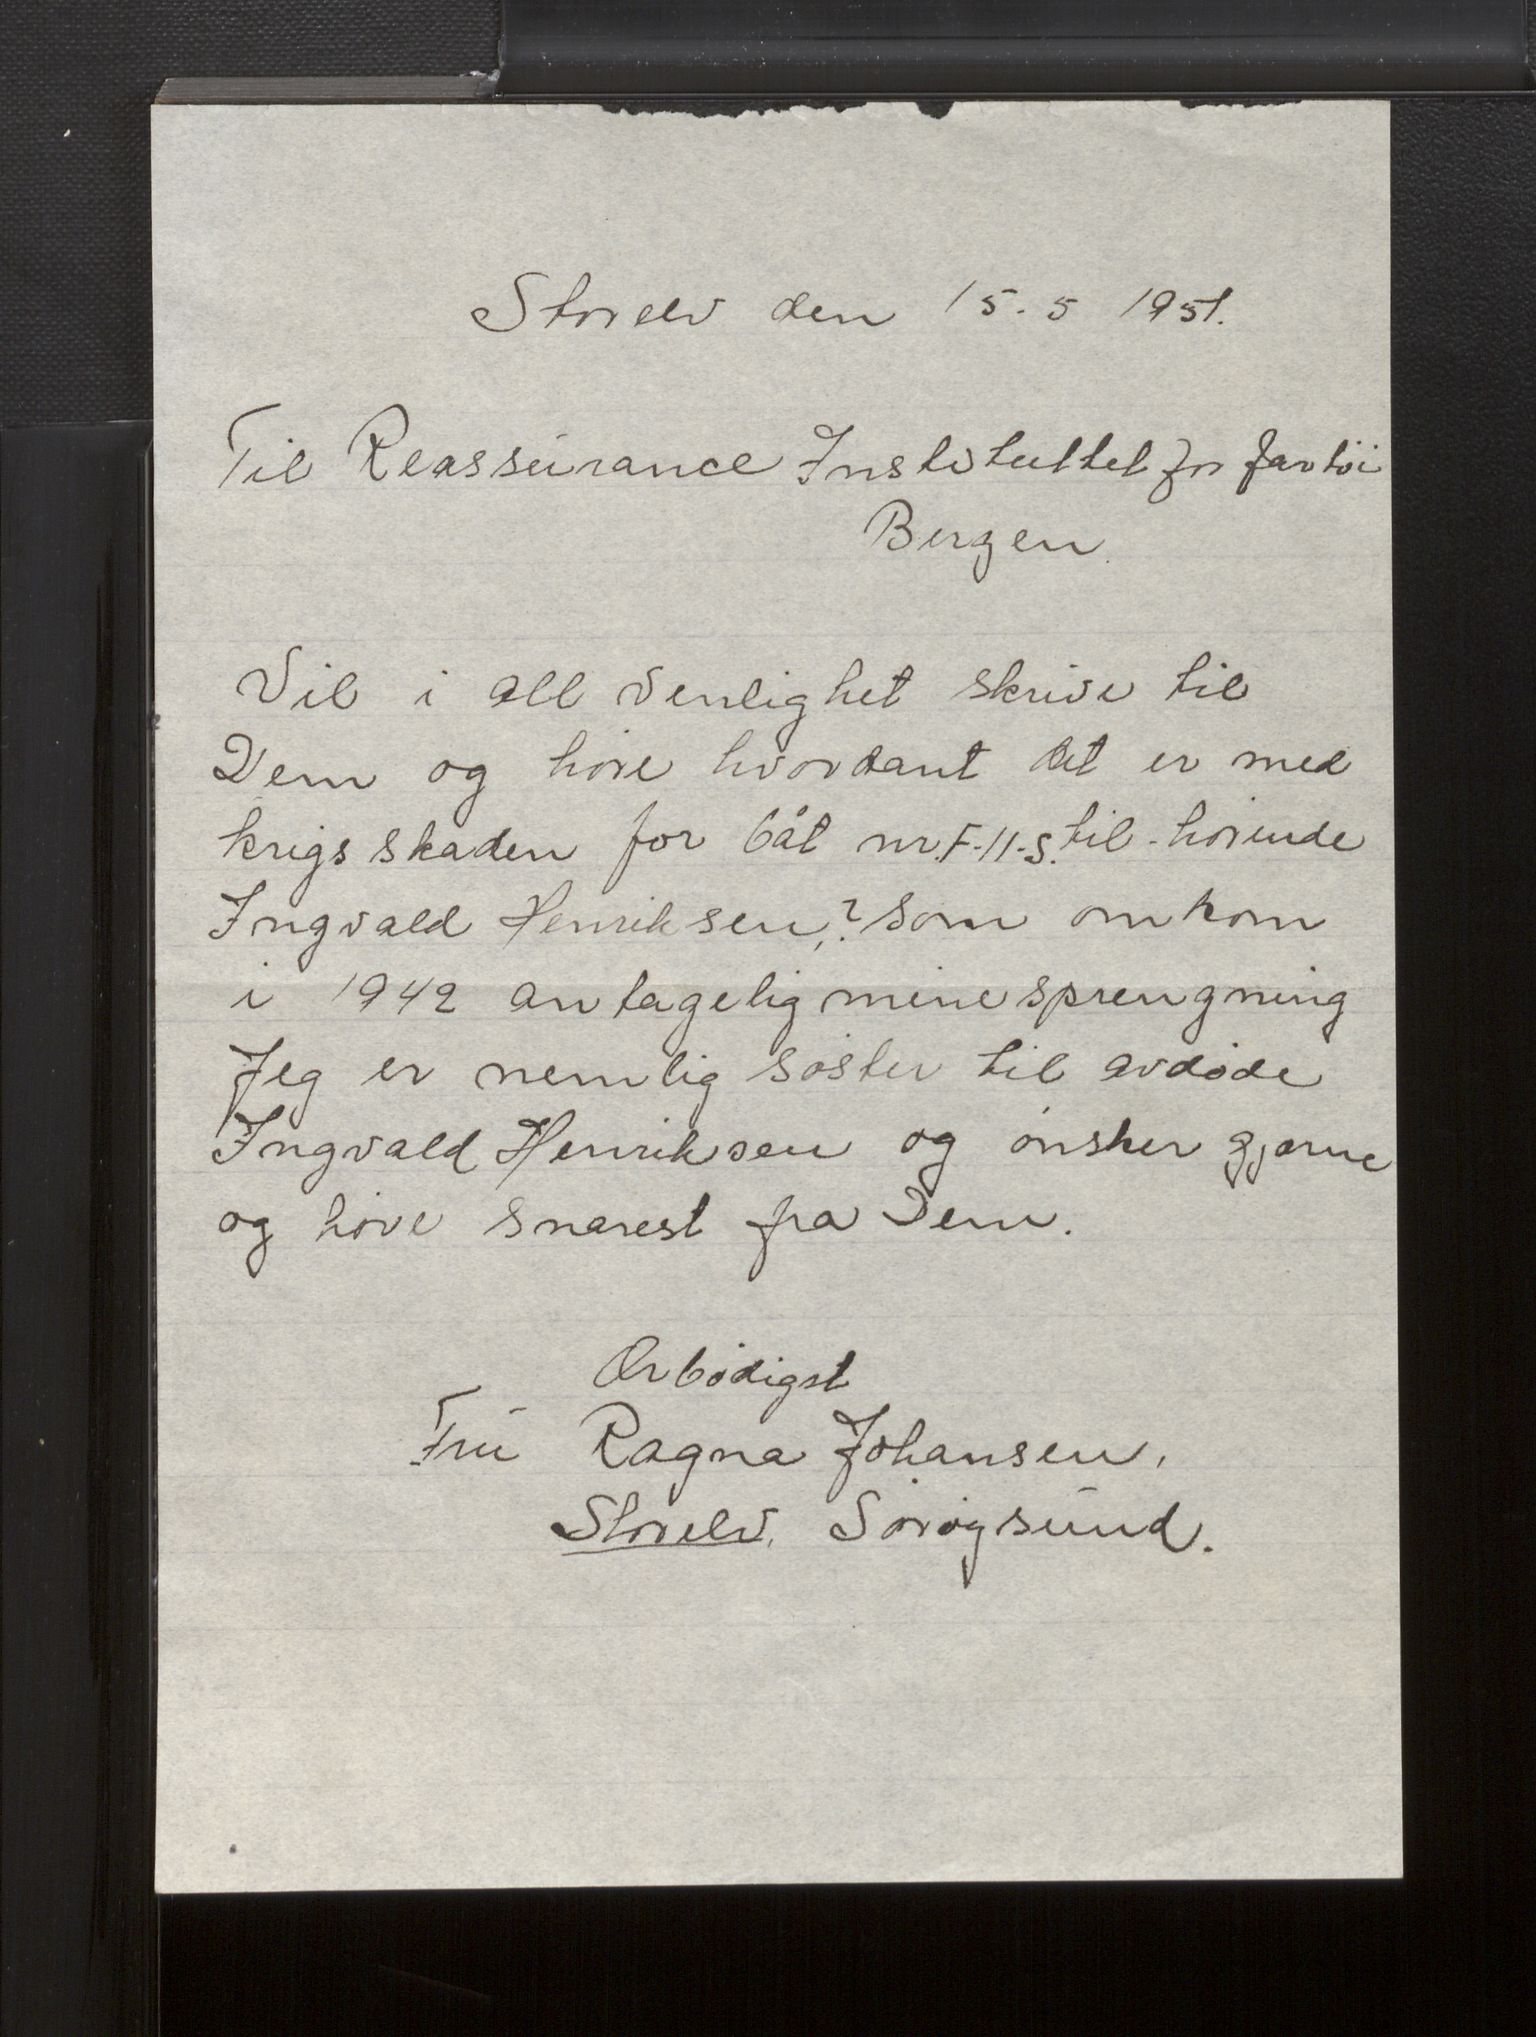 Storelv den 15.5 1951.
Til Reassurance Instituttet for fartöi
Bergen.
Vil i all venlighet skrive til
Dem og höre hvordant det er med
krigsskaden for båt nr. F-11-S. til-hörende
Ingvald Henriksen,? som omkom
i 1942 antagelig minesprengning
Jeg er nemlig söster til avdöde
Ingvald Henriksen og önsker gjerne
og höre snarest fra Dem.
Ærbödigst
Fru Ragna Johansen,
Storelv. Söröysund.